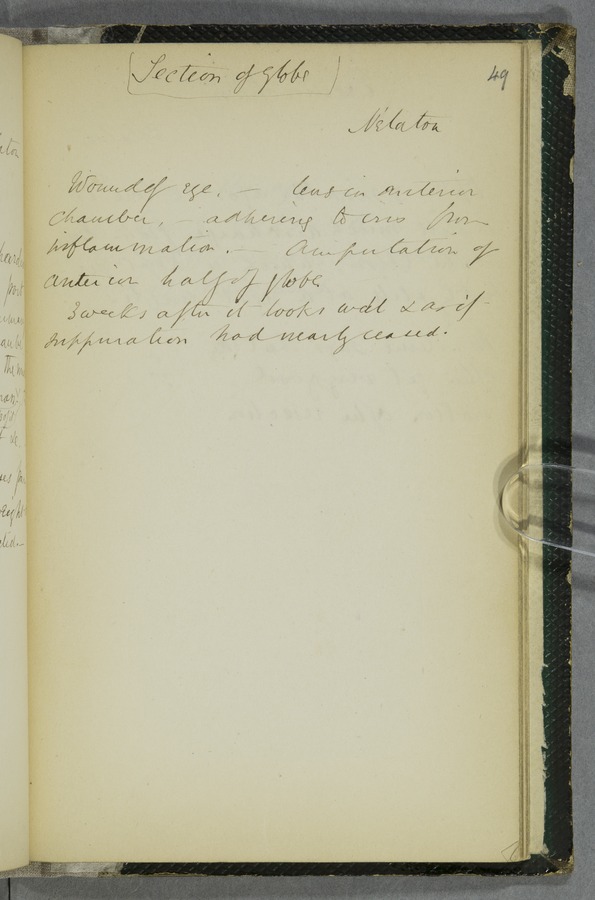 (Section of globe)
49
Nélaton
Wound of eye. — lens in anterior
chamber, — adhering to iris from
inflammation. — Amputation of
anterior half of globe
3 weeks after it looks well & as if
suppuration had nearly ceased.